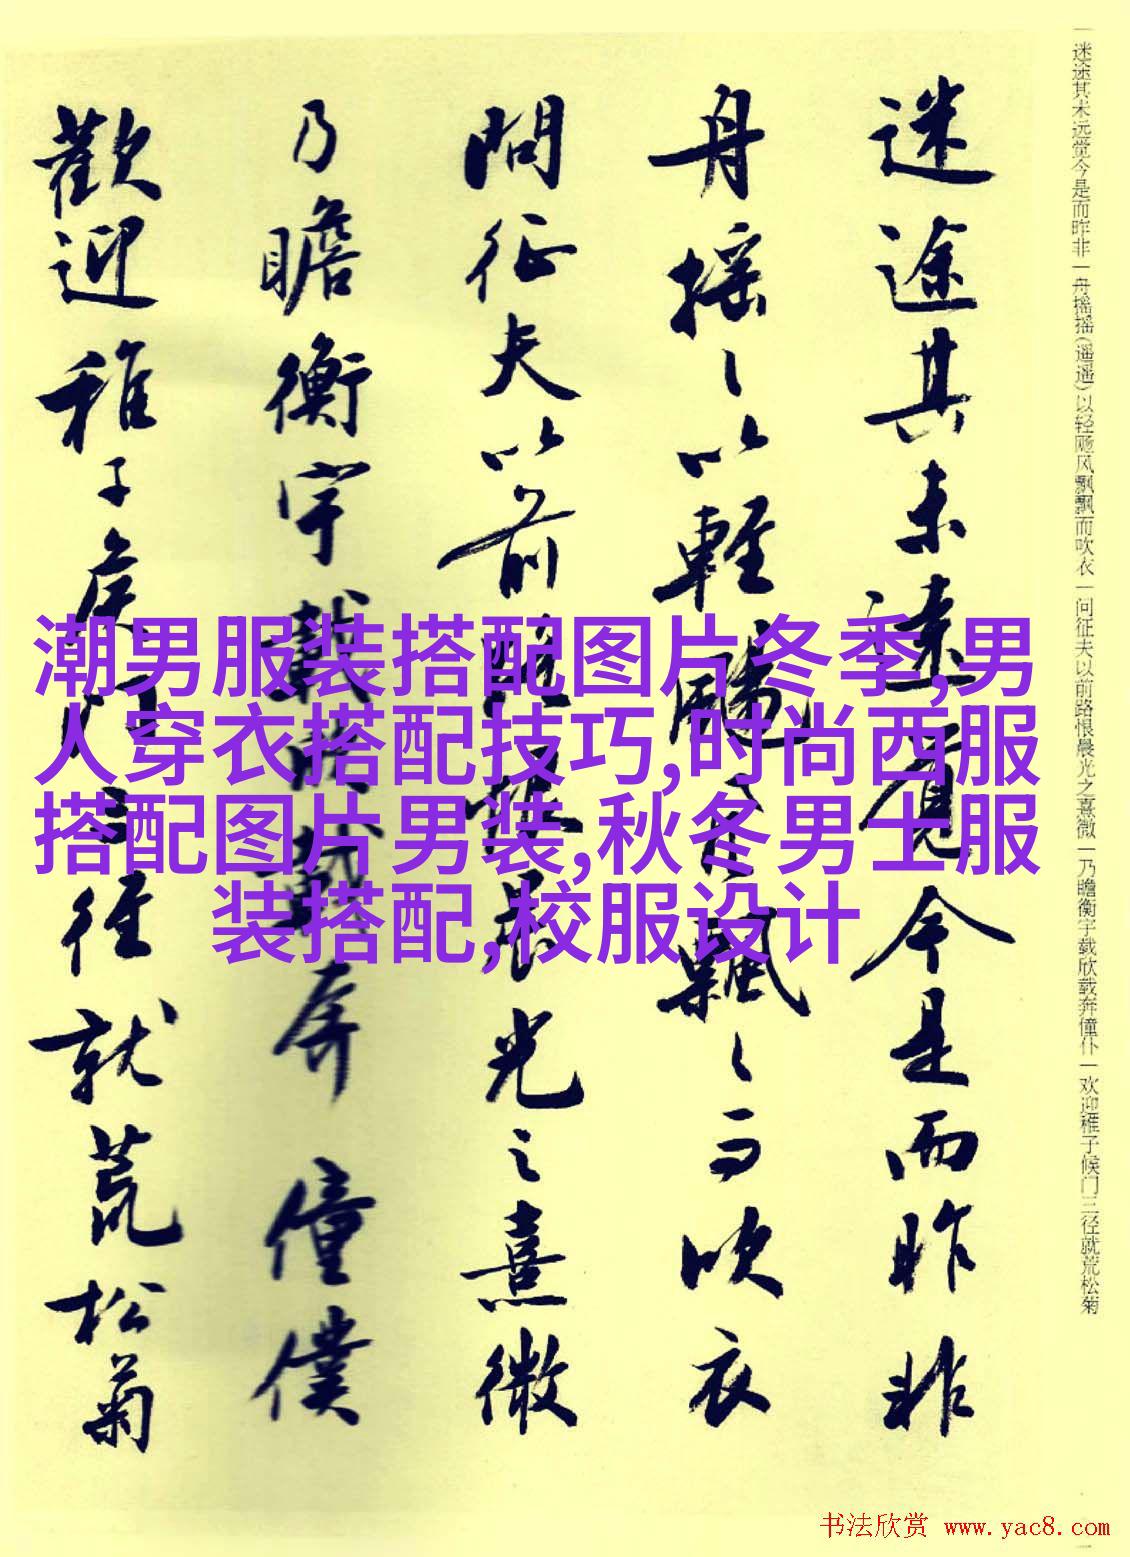 一迷途其未远觉今是而昨非一舟摇摇(遥遥)以轻飏风飘飘而吹衣一问征夫以前路恨晨光之熹微一乃瞻衡宇载欣载奔僮仆一欢迎稚子候门三径就荒松菊
迷途其未遠覺今是而昨非
舟摇〻以輕颺風飄〻而吹衣
問征夫以前路恨晨光之熹微
乃瞻衡宇載欣載奔僮僕
歡迎稚子候門三徑就荒松菊
潮男服装搭配图片冬季,男
人穿衣搭配技巧,时尚西服
搭配图片男装,秋冬男士服
装搭配,校服设计
书法欣赏 www.yac8.com